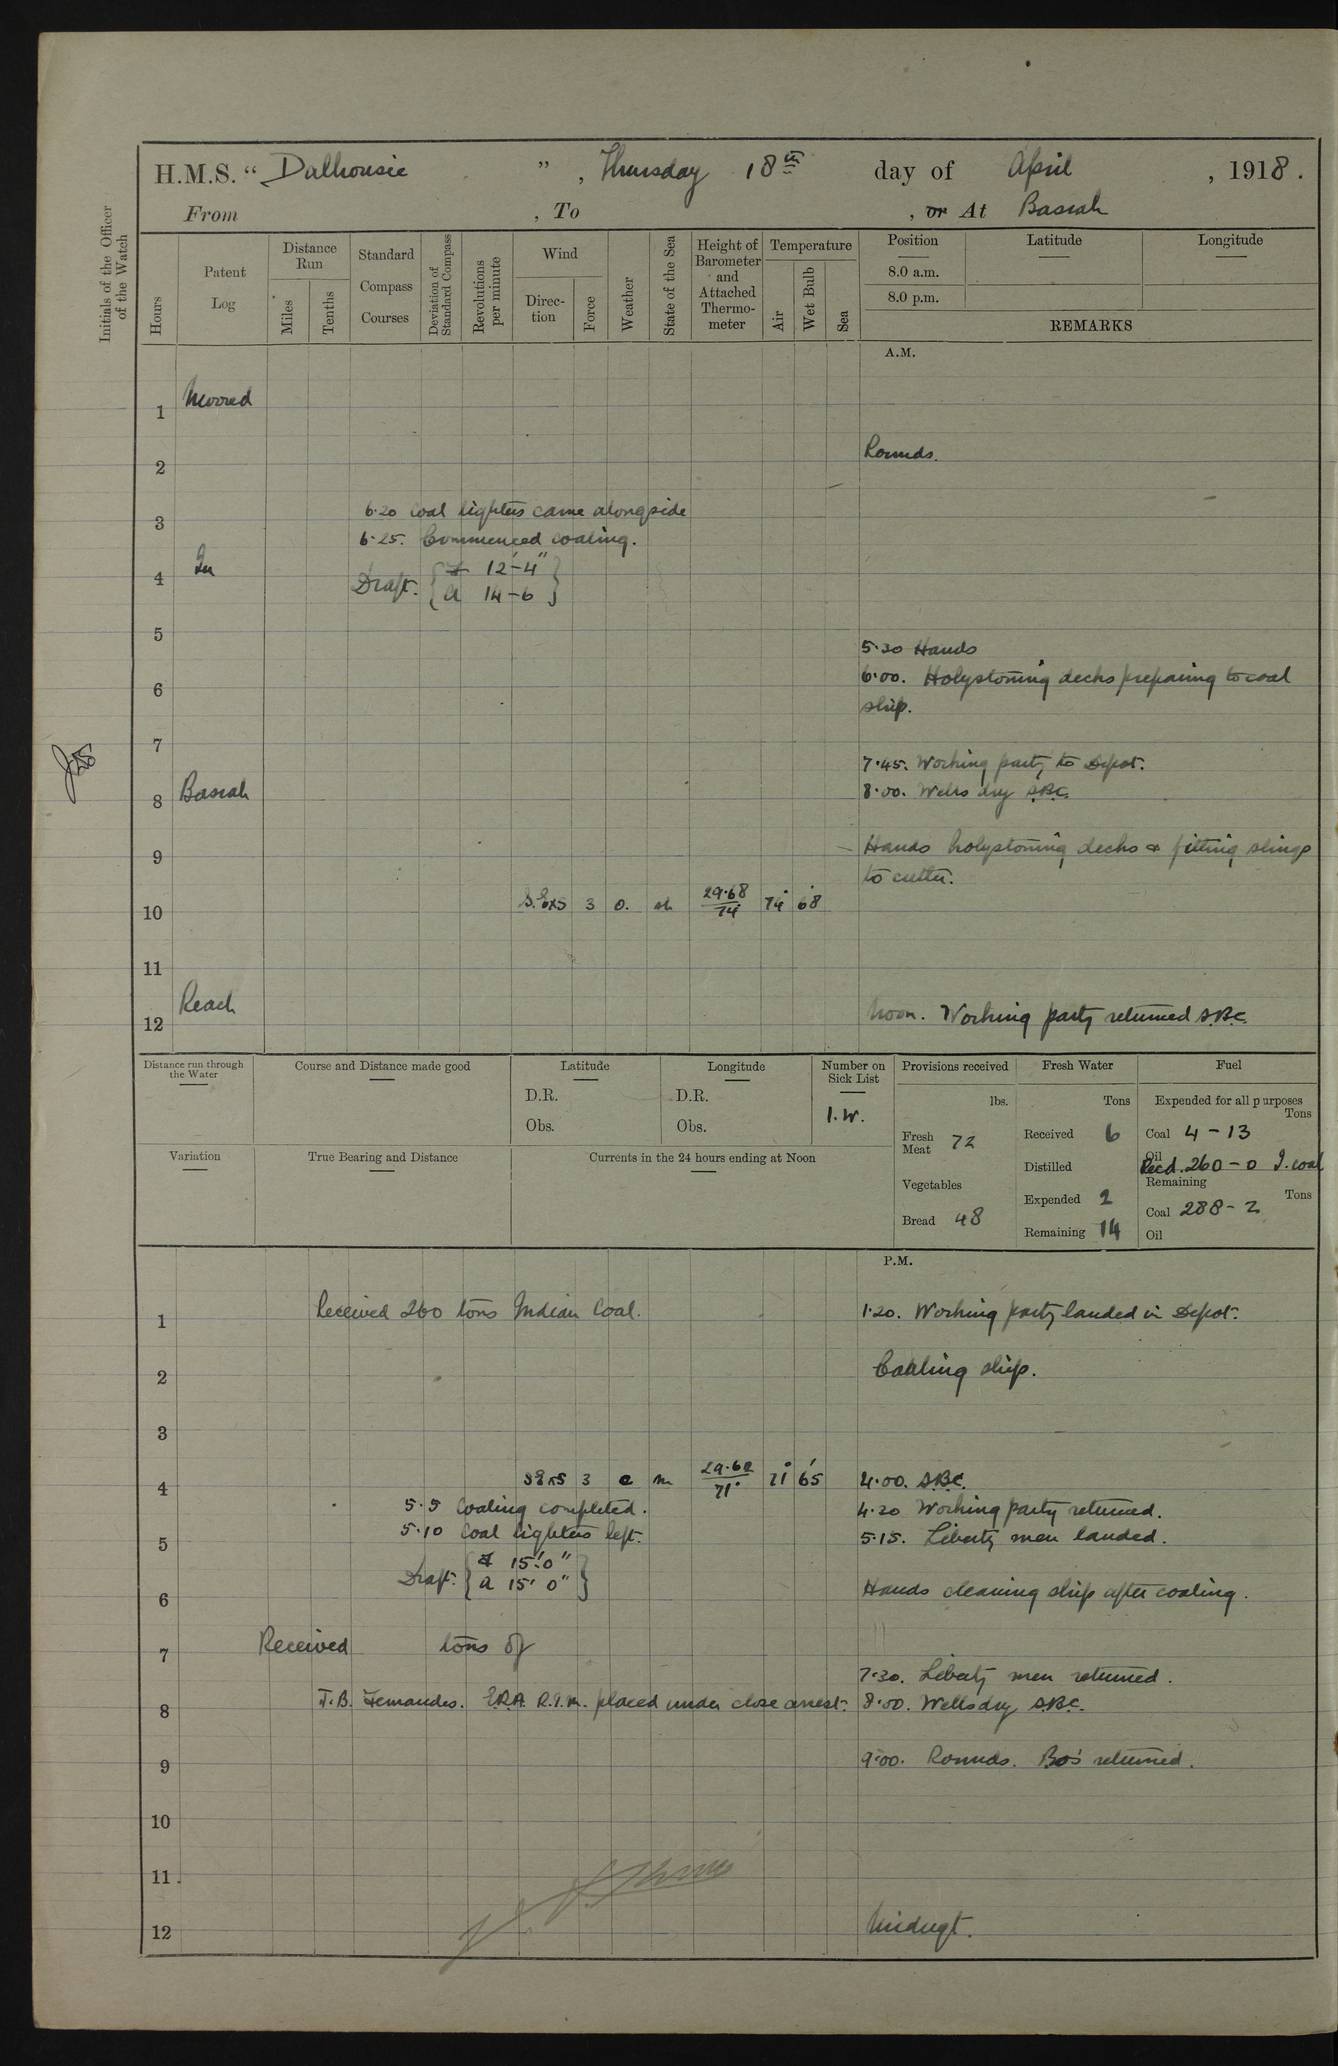 H.M.S. “ Dalhousie ” , Thursday 18th day of April , 1918 .
From , To , or At Basrah
Initials of the Officer of the Watch
Hours
Patent Log
Distance Run
Miles
Tenths
Standard Compass Courses
Deviation of Standard Compass
Revolutions per minute
Wind
Direc- tion
Force
Weather
State of the Sea
Height of Barometer and Attached Thermo- meter
Temperature
Air
Wet Bulb
Sea
Position
Latitude
Longitude
8.0 a.m.
8.0 p.m.
REMARKS
A.M.
1 Moored
2 Rounds.
6.20 Coal lighters came alongside
3
6.25. Commenced coaling.
4 In
Draft. { F 12'-4" }
{ A 14-6 }
5
5.30 Hands
6 6.00. Holystoning decks preparing to coal
ship.
7
7.45. Working party to Depot.
8 Basrah 8.00. Wells dry S.B.C.
9 Hands holystoning decks & fitting slings
to cutter.
10 S.ExS 3 o. 29.68 / 74 74° 68°
11
12 Reach Noon. Working party returned S.B.C.
Distance run through the Water
Course and Distance made good
Latitude
D.R.
Obs.
Longitude
D.R.
Obs.
Number on Sick List
1.W.
Provisions received
lbs.
Fresh Meat 72
Vegetables
Bread 48
Fresh Water
Tons
Received 6
Distilled
Expended 2
Remaining 14
Fuel
Expended for all purposes
Tons
Coal 4 - 13
Oil
Recd. 260 - 0 I. coal
Remaining
Tons
Coal 288 - 2
Oil
Variation
True Bearing and Distance
Currents in the 24 hours ending at Noon
P.M.
1 Received 260 tons Indian Coal. 1.20. Working party landed in Depot.
2 Coaling ship.
3
4 SExS 3 c m 29.62 / 71° 71° 65 4.00. S.B.C.
5.5 Coaling completed. 4.30 Working party returned.
5 5.10 Coal lighters left. 5.15. Liberty men landed.
Draft. { F 15' 0" }
{ A 15' 0" }
6 Hands cleaning ship after coaling.
7 Received tons of
7.30. Liberty men returned.
8 J.B. Fernandes. E.R.A. R.I.M. placed under close arrest. 8.00. Wells dry S.B.C.
9 9.00. Rounds. Bo's returned.
10
11
12 Midngt.